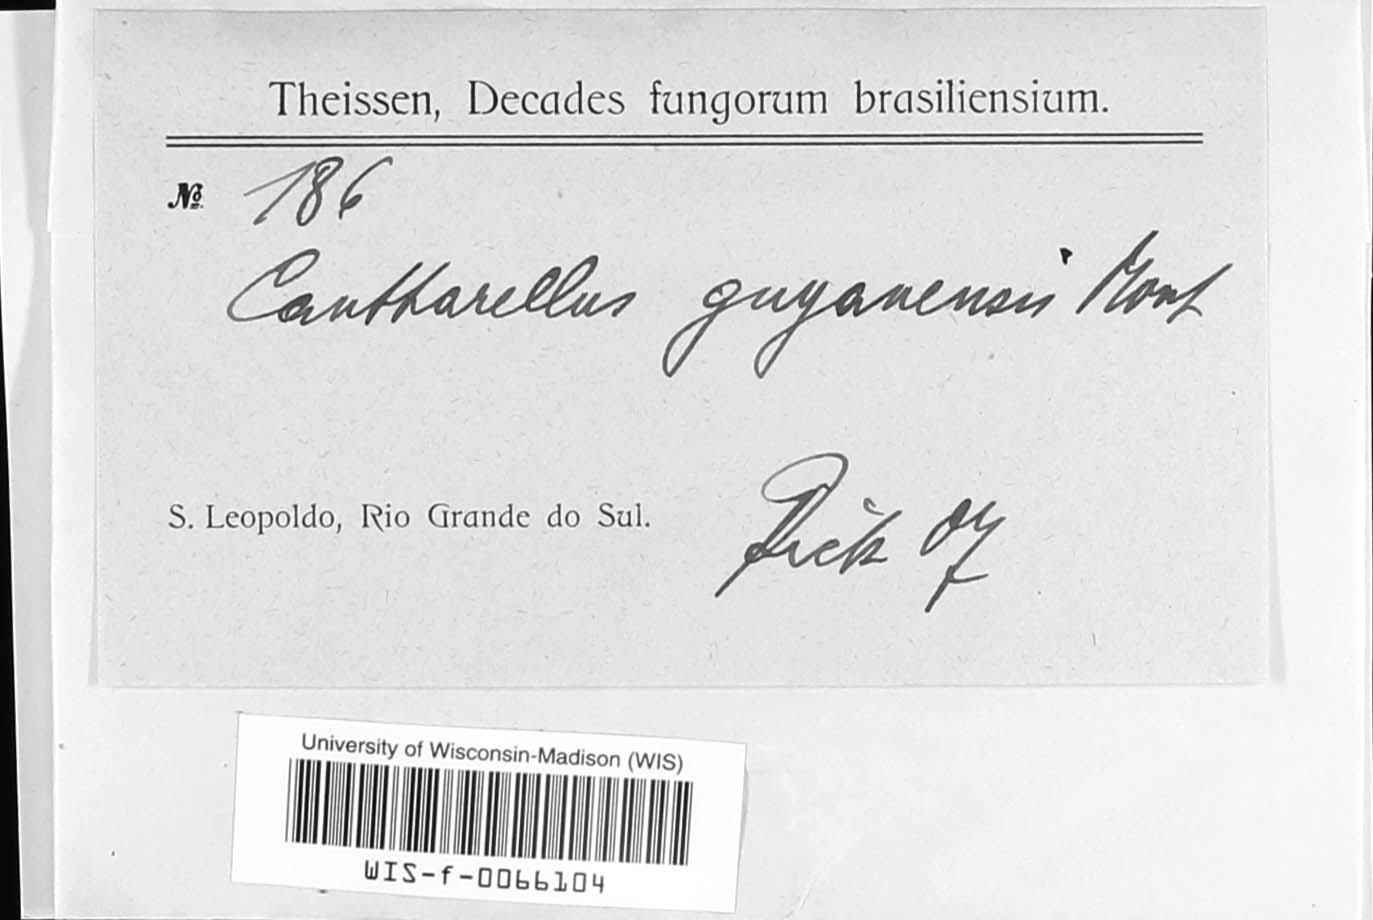 Theissen, Decades fungorum brasiliensium.
№ 186
Cantharellus guyanensis Mont
S. Leopoldo, Rio Grande do Sul.
Rick
University of Wisconsin-Madison (WIS)
WIS-f-0066104